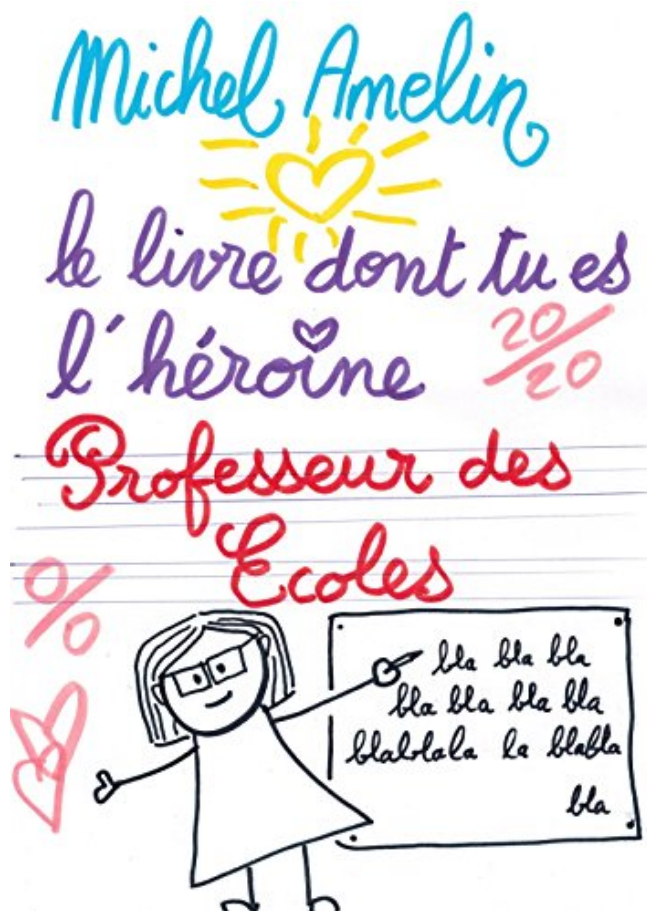 Michel Amelin
le livre dont tu es
l'héroïne
20/20
Professeur des
Ecoles
0/0
bla bla bla
bla bla bla bla
blablala la blabla
bla